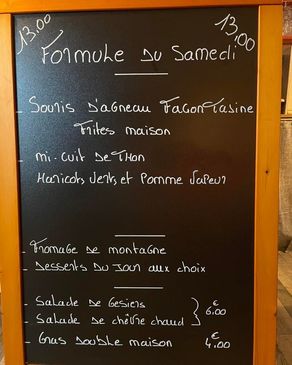 13.00 13.00
Formule Du Samedi
- Souris D'agneau Façon Tajine
Frites maison
- mi-cuit De Thon
Haricots Verts et Pomme Vapeur
- Fromage De montagne
- Desserts Du Jour aux choix
- Salade De Gesiers
- Salade De chèvre chaud } 6.00 €
- Gras Double maison 4.00 €